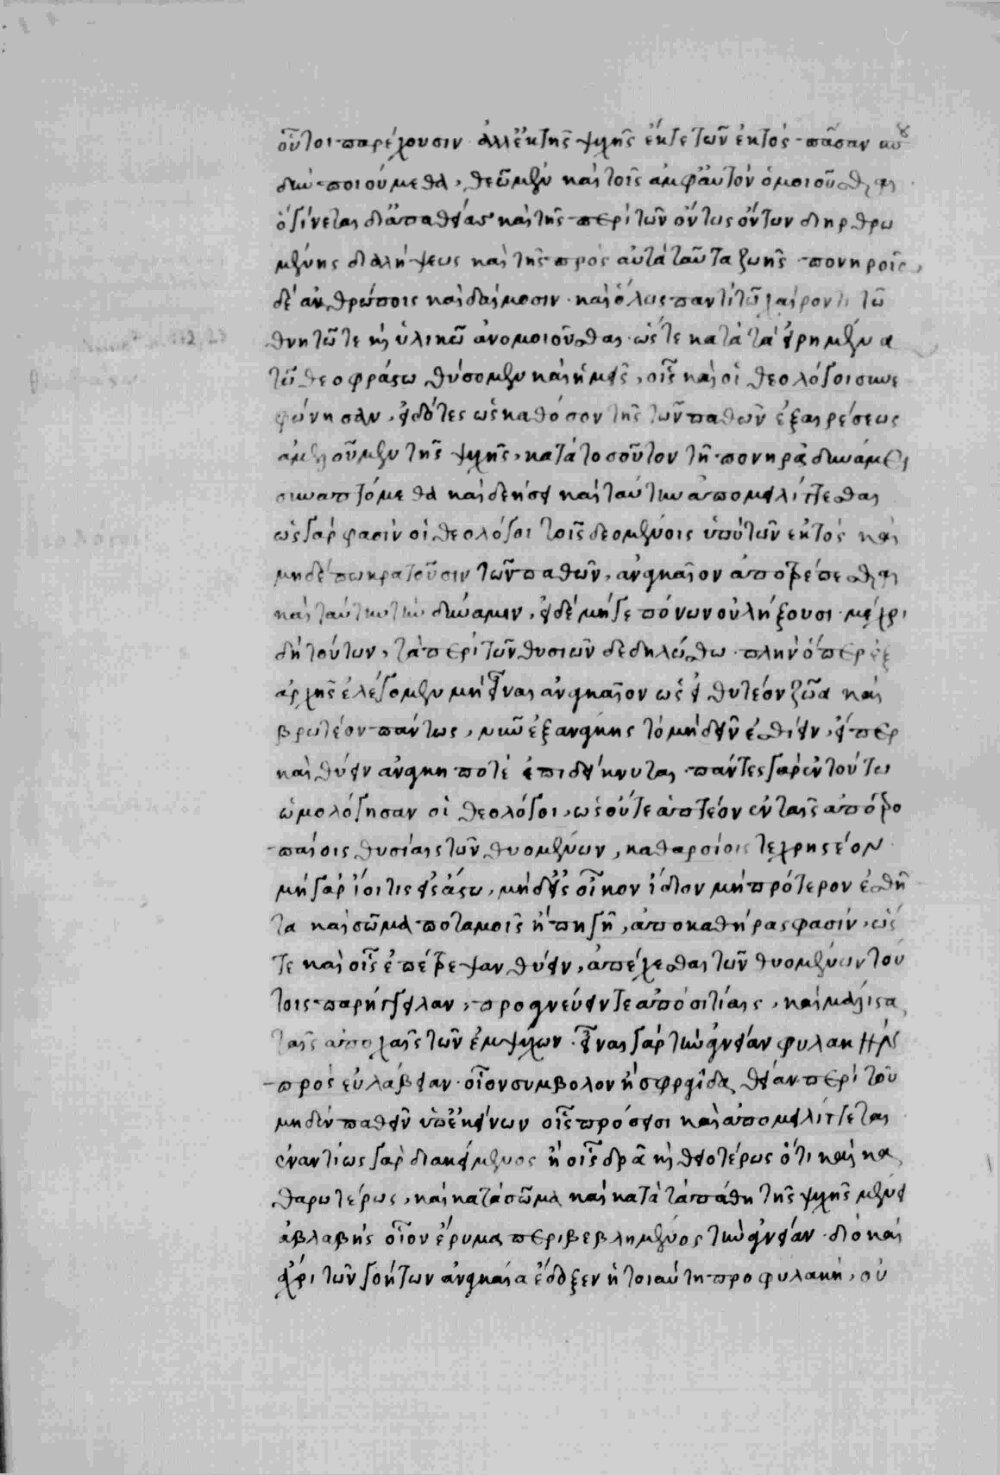 οὗτοι παρέχουσιν ἀλλ' ἐκ τῆς ψυχῆς ἔκ τε τῶν ἐκτός πᾶσαν σπου
δὴν ποιούμεθα, θεῷ μὲν καὶ τοῖς ἀμφ' αὐτὸν ὁμοιοῦσθαι
ὃ γίνεται δι' ἀπαθείας καὶ τῆς περὶ τῶν ὄντως ὄντων διηρθρω
μένης διαλήψεως καὶ τῆς πρὸς αὐτὰ ταῦτα ζωῆς πονηροῖς
δὲ ἀνθρώποις καὶ δαίμοσιν καὶ ὅλως παντὶ τῷ χαίροντι τῷ
θνητῷ τε καὶ ὑλικῷ ἀνομοιοῦσθαι ὥστε κατὰ τὰ εἰρημένα
τῷ θεοφράστῳ θύσομεν καὶ ἡμεῖς, οἷς καὶ οἱ θεολόγοι συνε
φώνησαν, εἰδότες ὡς καθόσον τῆς τῶν παθῶν ἐξαιρέσεως
ἀμελοῦμεν τῆς ψυχῆς, κατὰ τοσοῦτον τῇ πονηρᾷ δυνάμει
συναπτόμεθα καὶ δεήσει καὶ ταύτην ἀπομειλίττεσθαι
ὡς γάρ φασὶν οἱ θεολόγοι τοῖς δεομένοις ὑπὸ τῶν ἐκτός καὶ
μηδέπω κρατοῦσιν τῶν παθῶν, ἀναγκαῖον ἀποτρέπεσθαι
καὶ ταύτην τὴν δύναμιν, εἰ δὲ μή γε πόνων οὐ λήξουσι μέχρι
δὴ τούτων, τὰ περὶ τῶν θυσιῶν δεδηλώσθω πλὴν ὅπερ ἐξ
ἀρχῆς ἐλέγομεν μὴ εἶναι ἀναγκαῖον ὡς εἰ θυτέον ζῶα καὶ
βρωτέον πάντως, νῦν ἐξ ἀνάγκης τὸ μὴ δεῖν ἐσθίειν, εἴπερ
καὶ θύειν ἀνάγκη ποτὲ ἐπιδείκνυται πάντες γὰρ ἐν τούτῳ
ὡμολόγησαν οἱ θεολόγοι, ὡς οὔτε ἁπτέον ἐν ταῖς ἀποτρο
παίοις θυσίαις τῶν θυομένων, καθαρσίοις τε χρηστέον
μὴ γὰρ ἴοι τις εἰς ἄστυ, μηδ' εἰς οἶκον ἴδιον μὴ πρότερον ἐσθῆ
τα καὶ σῶμα ποταμοῖς ἢ πηγῇ, ἀποκαθήρας φασίν, ὥς
τε καὶ οἷς ἐπέτρεψαν θύειν, ἀπέχεσθαι τῶν θυομένων τού
τοις παρήγγειλαν, προαγνεύειν τε ἀποσιτίαις, καὶ μάλιστα
ταῖς ἀποχαῖς τῶν ἐμψύχων εἶναι γὰρ τὴν ἁγνείαν φυλακὴν
πρὸς εὐλάβειαν οἷον σύμβολον ἢ σφραγῖδα θείαν περὶ τοῦ
μηδὲν παθεῖν ὑπ' ἐκείνων οἷς πρόσεισι καὶ ἀπομειλίττεται
ἐναντίως γὰρ διακείμενος ἢ οἷς δρᾷ καὶ θειοτέρως ὅτι καὶ κα
θαρωτέρως, καὶ κατὰ σῶμα καὶ κατὰ τὰ πάθη τῆς ψυχῆς μένει
ἀβλαβὴς οἷον ἔρυμα περιβεβλημένος τὴν ἁγνείαν διὸ καὶ
ἄχρι τῶν γοήτων ἀναγκαία ἔδοξεν ἡ τοιαύτη προφυλακή, οὐ